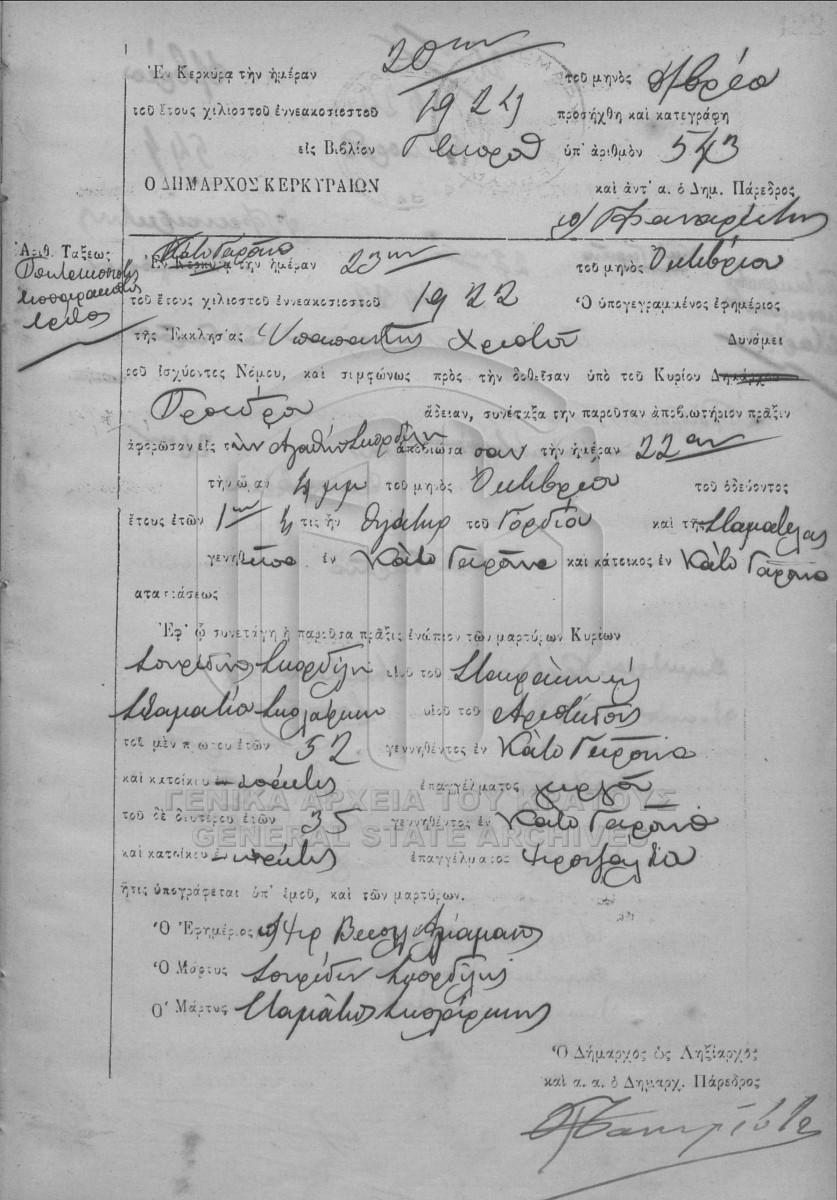 Ἐν Κερκύρᾳ τὴν ἡμέραν 20ην τοῦ μηνὸς
τοῦ ἔτους χιλιοστοῦ ἐννεακοσιοστοῦ 1924 προσήχθη καὶ κατεγράφη
εἰς Βιβλίον ὑπ' ἀριθμὸν 543
Ο ΔΗΜΑΡΧΟΣ ΚΕΡΚΥΡΑΙΩΝ καὶ ἀντ' α. ὁ Δημ. Πάρεδρος
Ἀριθ. Τάξεως
Κάτω Γαρούνα
Ἐν Κερκύρᾳ τὴν ἡμέραν 23ην τοῦ μηνὸς Ὀκτωβρίου
τοῦ ἔτους χιλιοστοῦ ἐννεακοσιοστοῦ 1922 Ὁ ὑπογεγραμμένος ἐφημέριος
τῆς Ἐκκλησίας Ὑπαπαντῆς Χριστοῦ Δυνάμει
τοῦ ἰσχύοντος Νόμου, καὶ συμφώνως πρὸς τὴν δοθεῖσαν ὑπὸ τοῦ Κυρίου Δημάρχου
Προέδρου ἄδειαν, συνέταξα τὴν παροῦσαν ἀποβιωτήριον πρᾶξιν
ἀφορῶσαν εἰς τὴν Ἀγαθὴν Σκορδίλη ἀποβιώσασαν τὴν ἡμέραν 22αν
τὴν ὥραν 4 μμ τοῦ μηνὸς Ὀκτωβρίου τοῦ ὁδεύοντος
ἔτους ἐτῶν τις ἦν θυγάτηρ τοῦ Γορδίου καὶ τῆς Σταματέλας
γεννηθεῖσα ἐν Κάτω Γαρούνα καὶ κάτοικος ἐν Κάτω Γαρούνα
καταστάσεως
Ἐφ' ᾧ συνετάγη ἡ παροῦσα πρᾶξις ἐνώπιον τῶν μαρτύρων Κυρίων
Σπυρίδων Σκορδίλη υἱοῦ τοῦ Σταυράκη καὶ
Σταματίου υἱοῦ τοῦ
τοῦ μὲν πρώτου ἐτῶν 52 γεννηθέντος ἐν Κάτω Γαρούνα
καὶ κατοίκου ἐν ἐπαγγέλματος
τοῦ δὲ δευτέρου ἐτῶν 35 γεννηθέντος ἐν Κάτω Γαρούνα
καὶ κατοίκου ἐν ἐπαγγέλματος
ΓΕΝΙΚΑ ΑΡΧΕΙΑ ΤΟΥ ΚΡΑΤΟΥΣ
GENERAL STATE ARCHIVES
ἥτις ὑπογράφεται ὑπ' ἐμοῦ, καὶ τῶν μαρτύρων.
Ὁ Ἐφημέριος
Ὁ Μάρτυς Σπυρίδων Σκορδίλης
Ὁ Μάρτυς Σταμάτιος
Ὁ Δήμαρχος ὡς Ληξίαρχος
καὶ α. α. ὁ Δημαρχ. Πάρεδρος